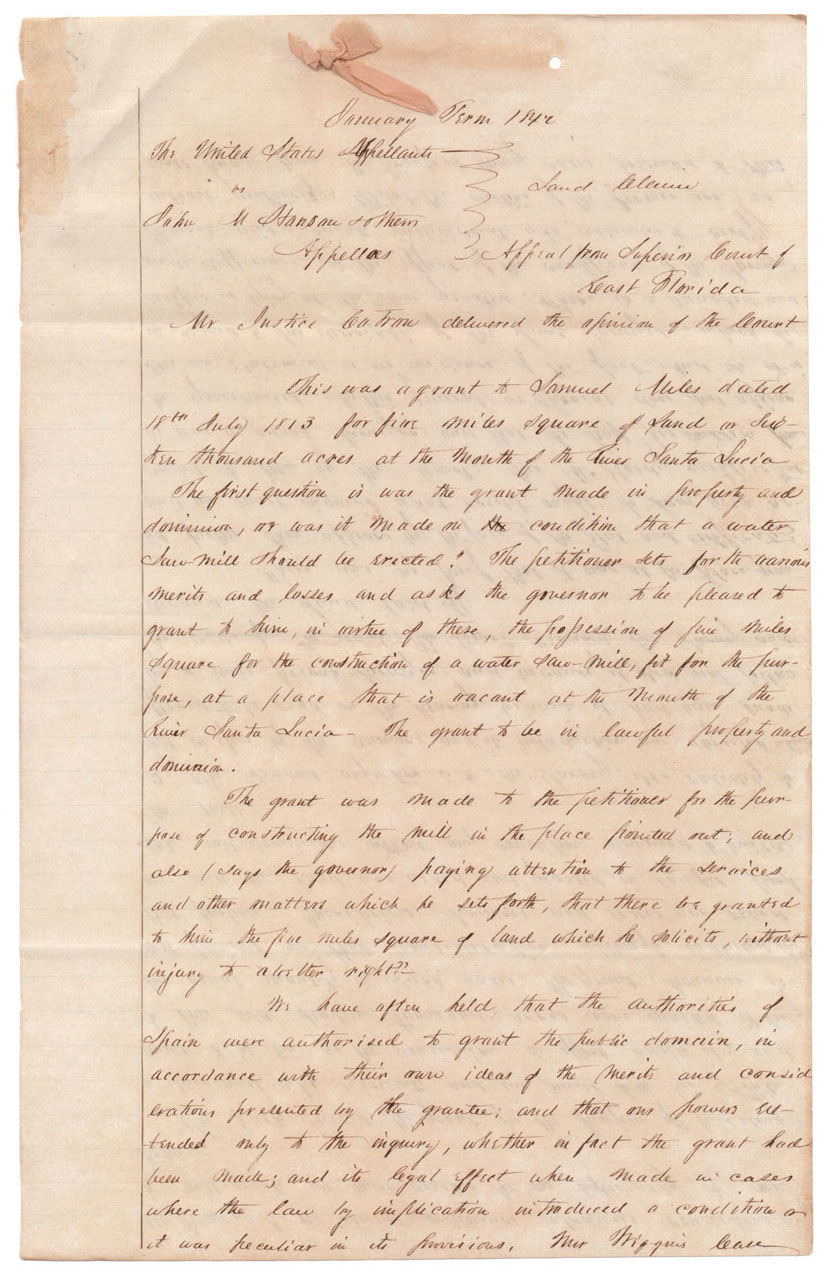 January Term 1842
The United States Appellants
vs
Land Claim
John M Hanson & others
Appellees
Appeal from Superior Court of
East Florida
Mr Justice Catron delivered the opinion of the Court
This was a grant to Samuel Miles dated
18th July 1813 for five miles square of Land or Six-
teen thousand acres at the Mouth of the River Santa Lucia
The first question is was the grant made in property and
dominion, or was it made on the condition that a water
Saw-mill should be erected? The petitioner sets forth various
merits and losses and asks the governor to be pleased to
grant to him, in virtue of these, the possession of five miles
square for the construction of a water saw-mill, fit for the pur-
pose, at a place that is vacant at the Mouth of the
River Santa Lucia - The grant to be in lawful property and
dominion.
The grant was made to the petitioner for the pur-
pose of constructing the mill in the place pointed out; and
also (says the governor) paying attention to the services
and other matters which he sets forth, that there be granted
to him the five miles square of land which he solicits, without
injury to a better right"-
We have often held, that the authorities of
Spain were authorised to grant the public domain, in
accordance with their own ideas of the merits and consid
erations presented by the grantee; and that our powers ex-
tended only to the inquiry, whether in fact the grant had
been made; and its legal effect when made in cases
where the law by implication introduced a condition or
it was peculiar in its provisions. Mr Wiggins Case